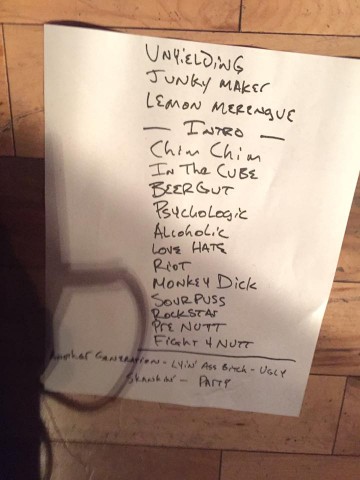 UNYIELDING
JUNKY MAKER
LEMON MERENGUE
— INTRO —
Chim Chim
IN THE CUBE
BEERGUT
PSYCHOLOGIC
ALCOHOLIC
LOVE HATE
RIOT
MONKEY DICK
SOURPUSS
ROCKSTAR
PIE NUTT
FIGHT 4 NUTT
GENERATION - LYIN' ASS BITCH - UGLY
- PARTY